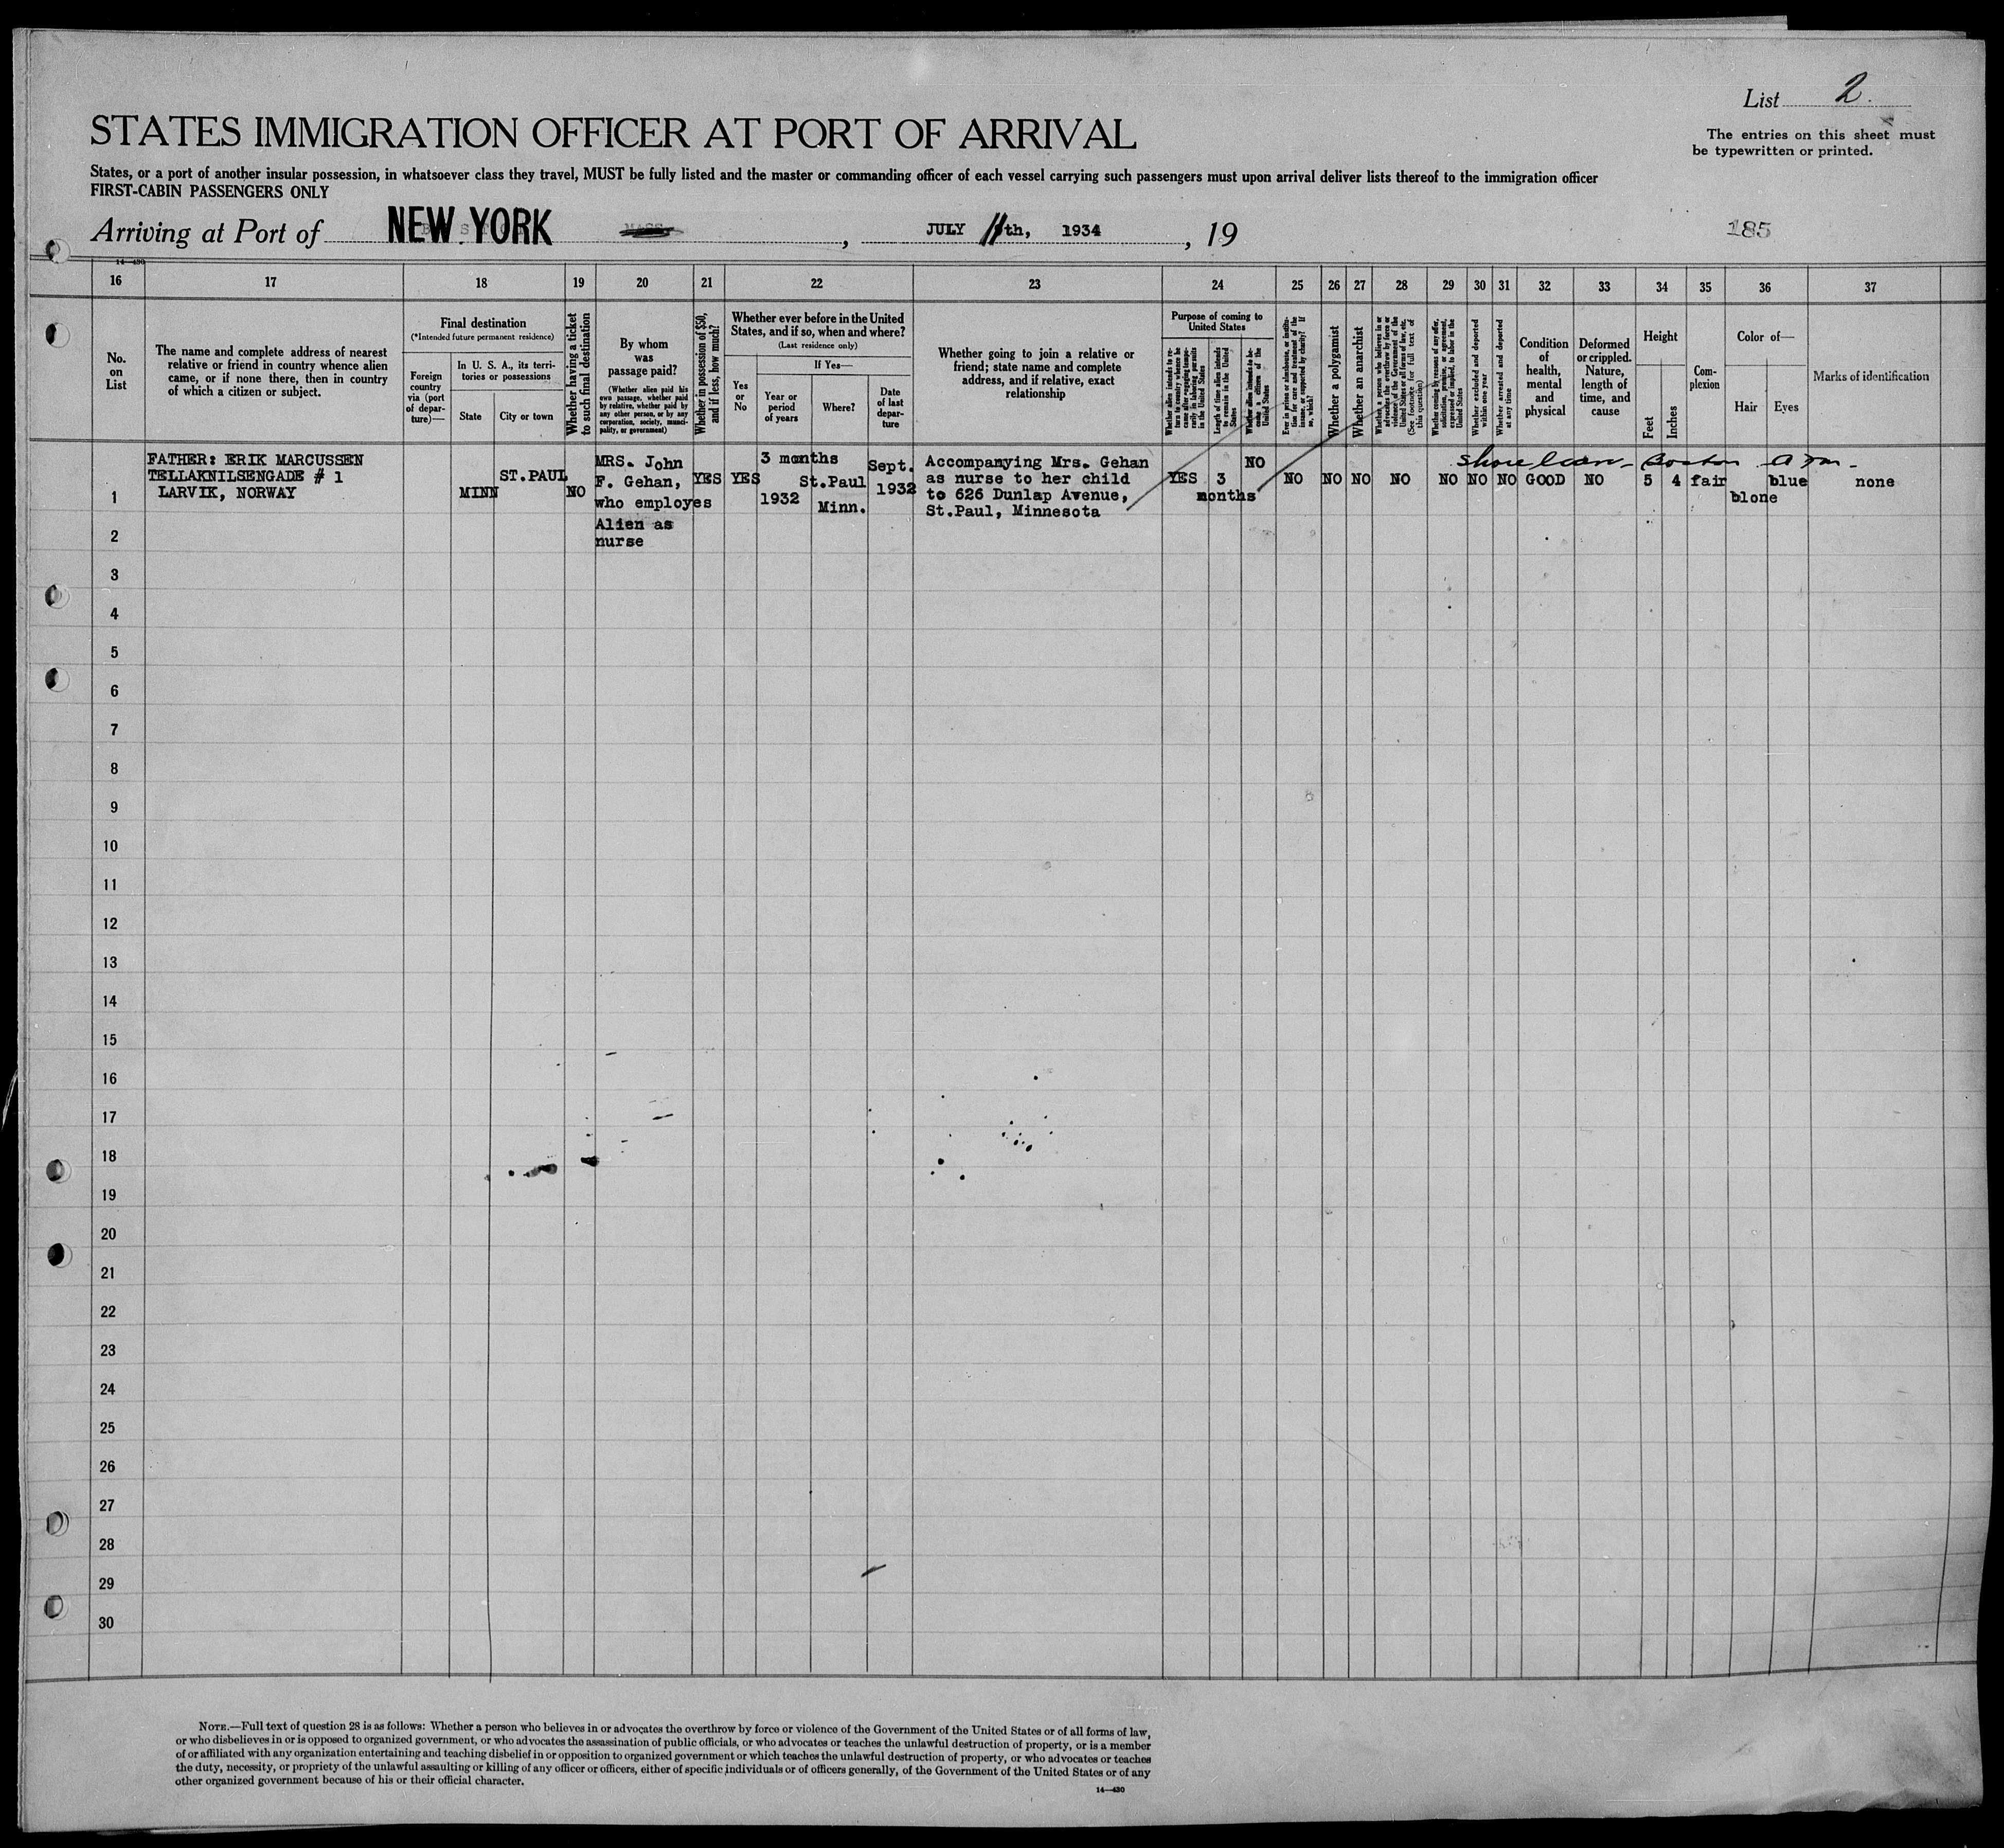 List 2.
STATES IMMIGRATION OFFICER AT PORT OF ARRIVAL
The entries on this sheet must
be typewritten or printed.
States, or a port of another insular possession, in whatsoever class they travel, MUST be fully listed and the master or commanding officer of each vessel carrying such passengers must upon arrival deliver lists thereof to the immigration officer
FIRST-CABIN PASSENGERS ONLY
Arriving at Port of NEW YORK, JULY 11th, 1934, 19
185
14—430
16 17 18 19 20 21 22 23 24 25 26 27 28 29 30 31 32 33 34 35 36 37
No.
on
List
The name and complete address of nearest
relative or friend in country whence alien
came, or if none there, then in country
of which a citizen or subject.
Final destination
(*Intended future permanent residence)
Foreign
country
via (port
of depar-
ture)—
In U. S. A., its terri-
tories or possessions
State
City or town
Whether having a ticket
to such final destination
By whom
was
passage paid?
(Whether alien paid his
own passage, whether paid
by relative, whether paid by
any other person, or by any
corporation, society, munici-
pality, or government)
Whether in possession of $50,
and if less, how much?
Whether ever before in the United
States, and if so, when and where?
(Last residence only)
Yes
or
No
If Yes—
Year or
period
of years
Where?
Date
of last
depar-
ture
Whether going to join a relative or
friend; state name and complete
address, and if relative, exact
relationship
Purpose of coming to
United States
Whether alien intends to re-
turn to country whence he
came after engaging tempo-
rarily in laboring pursuits
in the United States
Length of time alien intends
to remain in the United
States
Whether alien intends to be-
come a citizen of the
United States
Ever in prison or almshouse, or institu-
tion for care and treatment of the
insane, or supported by charity? If
so, which?
Whether a polygamist
Whether an anarchist
Whether a person who believes in or
advocates the overthrow by force or
violence of the Government of the
United States or all forms of law, etc.
(See footnote for full text of
this question)
Whether coming by reason of any offer,
solicitation, promise, or agreement,
expressed or implied, to labor in the
United States
Whether excluded and deported
within one year
Whether arrested and deported
at any time
Condition
of
health,
mental
and
physical
Deformed
or crippled.
Nature,
length of
time, and
cause
Height
Feet
Inches
Com-
plexion
Color of—
Hair
Eyes
Marks of identification
1
FATHER: ERIK MARCUSSEN
TELLAKNILSENGADE # 1
LARVIK, NORWAY
MINN
ST.PAUL
NO
MRS. John
F. Gehan,
who employes
Alien as
nurse
YES
YES
3 months
1932
St.Paul
Minn.
Sept.
1932
Accompanying Mrs. Gehan
as nurse to her child
to 626 Dunlap Avenue,
St.Paul, Minnesota
YES
3
months
NO
NO NO NO NO NO NO NO GOOD NO 5 4 fair
blone
blue
none
2
3
4
5
6
7
8
9
10
11
12
13
14
15
16
17
18
19
20
21
22
23
24
25
26
27
28
29
30
NOTE.—Full text of question 28 is as follows: Whether a person who believes in or advocates the overthrow by force or violence of the Government of the United States or of all forms of law,
or who disbelieves in or is opposed to organized government, or who advocates the assassination of public officials, or who advocates or teaches the unlawful destruction of property, or is a member
of or affiliated with any organization entertaining and teaching disbelief in or opposition to organized government or which teaches the unlawful destruction of property, or who advocates or teaches
the duty, necessity, or propriety of the unlawful assaulting or killing of any officer or officers, either of specific individuals or of officers generally, of the Government of the United States or of any
other organized government because of his or their official character.
14—430